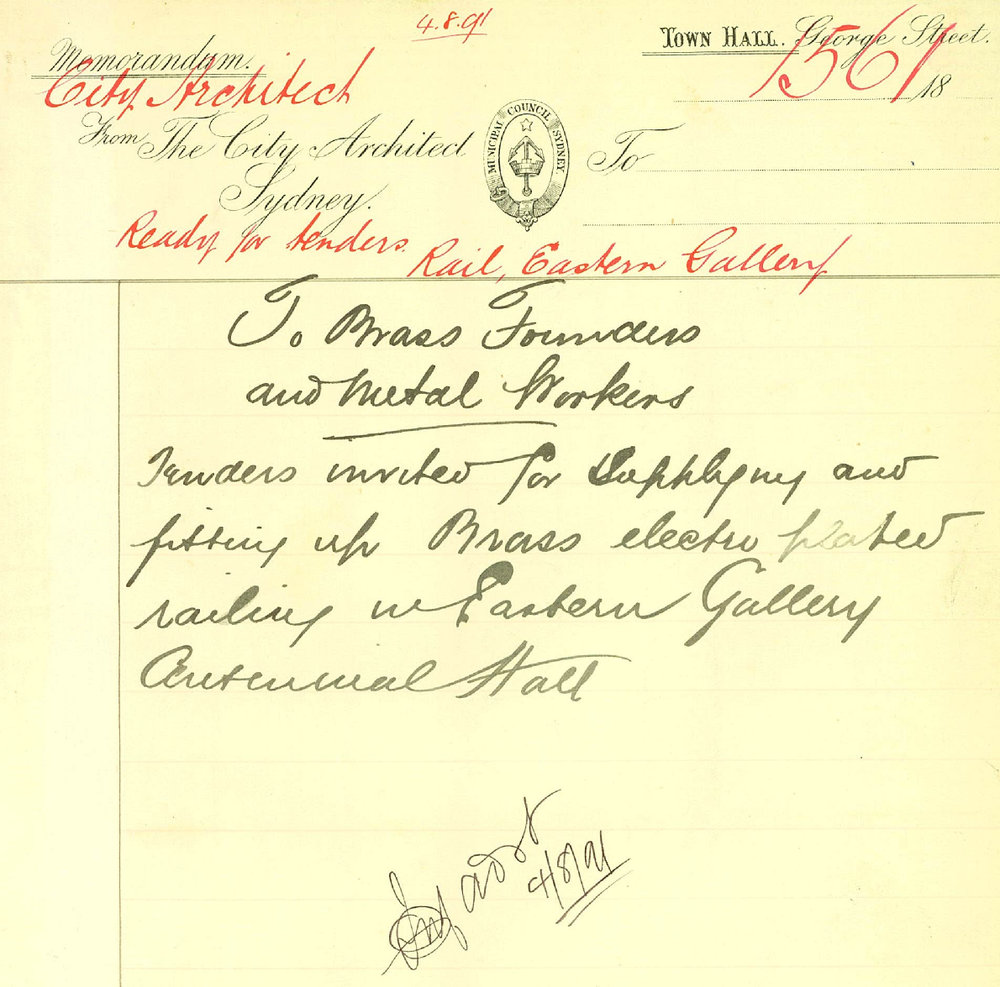 4.8.91
TOWN HALL. George Street.
Memorandum.
1561
City Architect
18
From The City Architect
MUNICIPAL COUNCIL SYDNEY
To
Sydney.
Ready for tenders.
Rail, Eastern Gallery
To Brass Founders
and Metal Workers
Tenders invited for Supplying and
fitting up Brass electro plated
railing in Eastern Gallery
Centennial Hall
advt
4/8/91